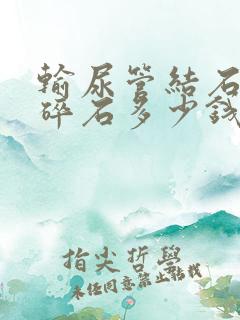 輸尿管結石
碎石多少錢
指尖哲學
未经同意禁止转载